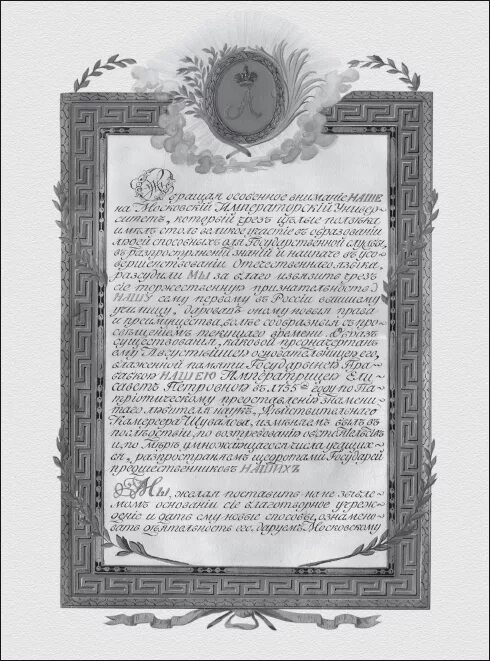 А
Обращая особенное вниманіе НАШЕ
на Московскій Императорскій Универ-
ситетъ, который чрезъ цѣлые полвѣка
имѣлъ столь великое участіе въ образованіи
людей способныхъ для Государственной службы,
въ распространеніи знаній и наипаче въ усо-
вершенствованіи Отечественнаго языка,
разсудили МЫ за благо изъявить чрезъ
сіе торжественную признательность
НАШУ сему первому въ Россіи вышнему
училищу, даровавъ оному новыя права
и преимущества, болѣе сообразныя съ про-
свѣщеніемъ текущаго времени. Образъ
существованія, каковой предначертанъ
ему Августѣйшею основательницею его,
блаженной памяти Государынею Пра-
бабкою НАШЕЮ Императрицею Ели-
саветъ Петровною въ 1755мъ году по Па-
тріотическому представленію знамени-
таго любителя наукъ, Дѣйствительнаго
Камергера Шувалова, измѣняемъ былъ въ
послѣдствіи, по востребованію обстоятельствъ
и, по мѣрѣ умножающагося числа учащих-
ся, распространяемъ щедротами Государей
предшественниковъ НАШИХЪ
МЫ, желая поставить на незыбле-
момъ основаніи сіе благотворное учреж-
деніе и дать ему новые способы, ознамено-
вать дѣятельность его: даруемъ Московскому